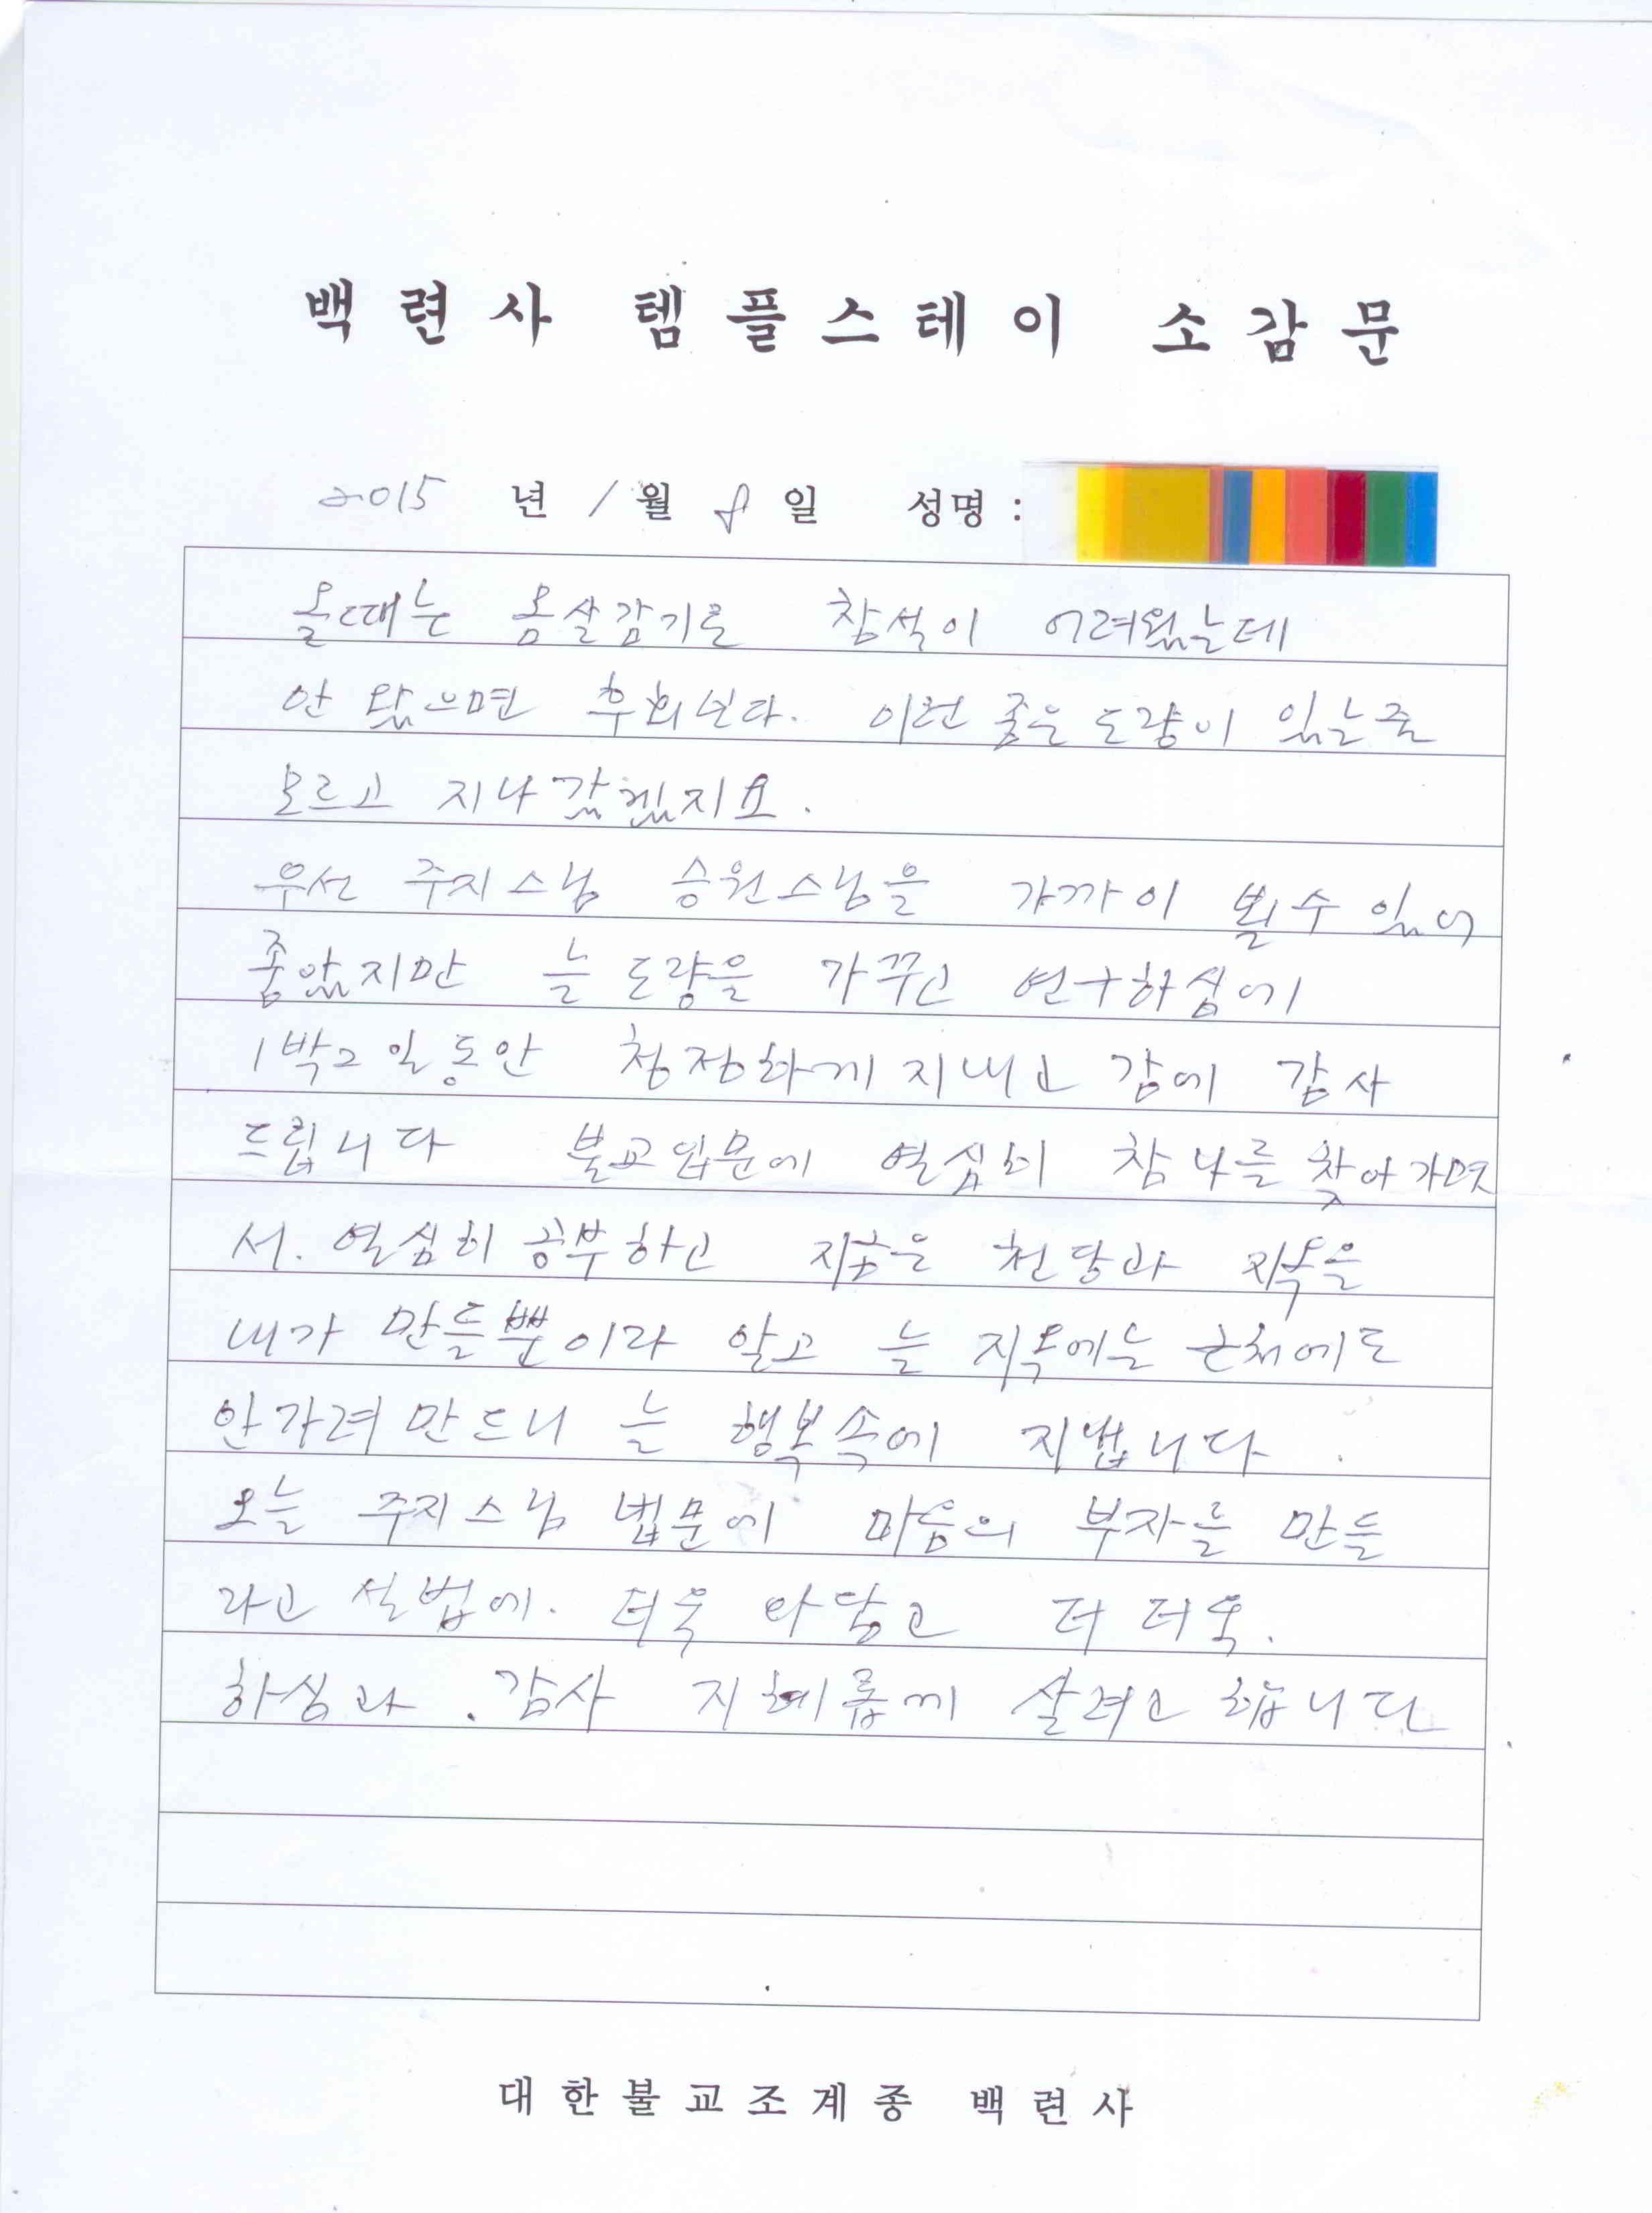 백련사 템플스테이 소감문
2015 년 1 월 8 일 성명 :
올때는 몸살감기로 참석이 어려웠는데
안 왔으면 후회난다. 이런 좋은 도량이 있는줄
모르고 지나갔겠지요.
우선 주지스님 승원스님을 가까이 뵐수 있어
좋았지만 늘 도량을 가꾸고 연구하심에
1박2일동안 청정하게 지내고 감에 감사
드립니다 불교입문에 열심히 참 나를 찾아가면
서. 열심히 공부하고 지금은 천당과 지옥을
내가 만들뿐이라 알고 늘 지옥에는 근처에도
안가려 만드니 늘 행복속에 지냅니다.
오늘 주지스님 법문에 마음의 부자를 만들
라고 설법에. 더욱 와닿고 더 더욱.
하심과. 감사 지혜롭게 살려고 합니다
대한불교조계종 백련사